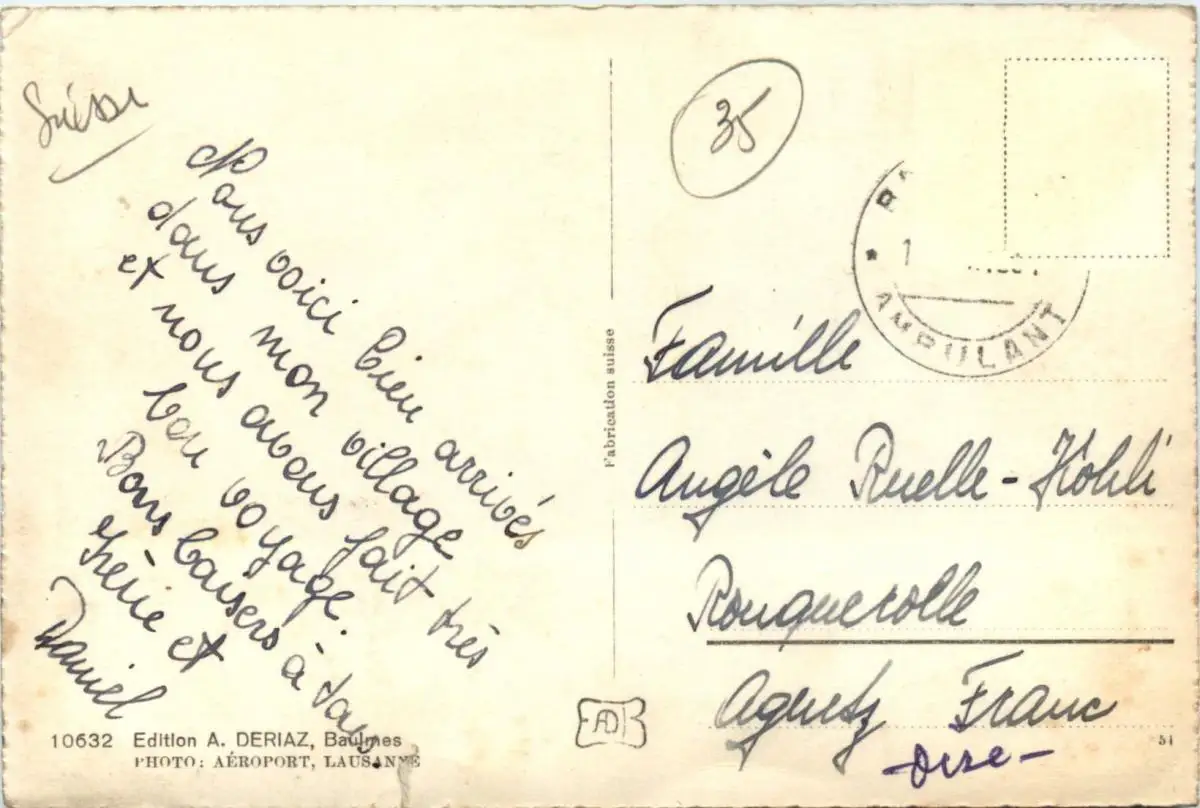 Suisse
Nous voici bien arrivés
dans mon village
et nous avons fait très
bon voyage.
Bons baisers à tous
Irène et
Daniel
10632 Edition A. DERIAZ, Baulmes
PHOTO: AÉROPORT, LAUSANNE
Fabrication suisse
AD
35
AMBULANT
Famille
Angèle Ruelle-Kohli
Rouquerolle
Agnetz Franc
-Oise-
51